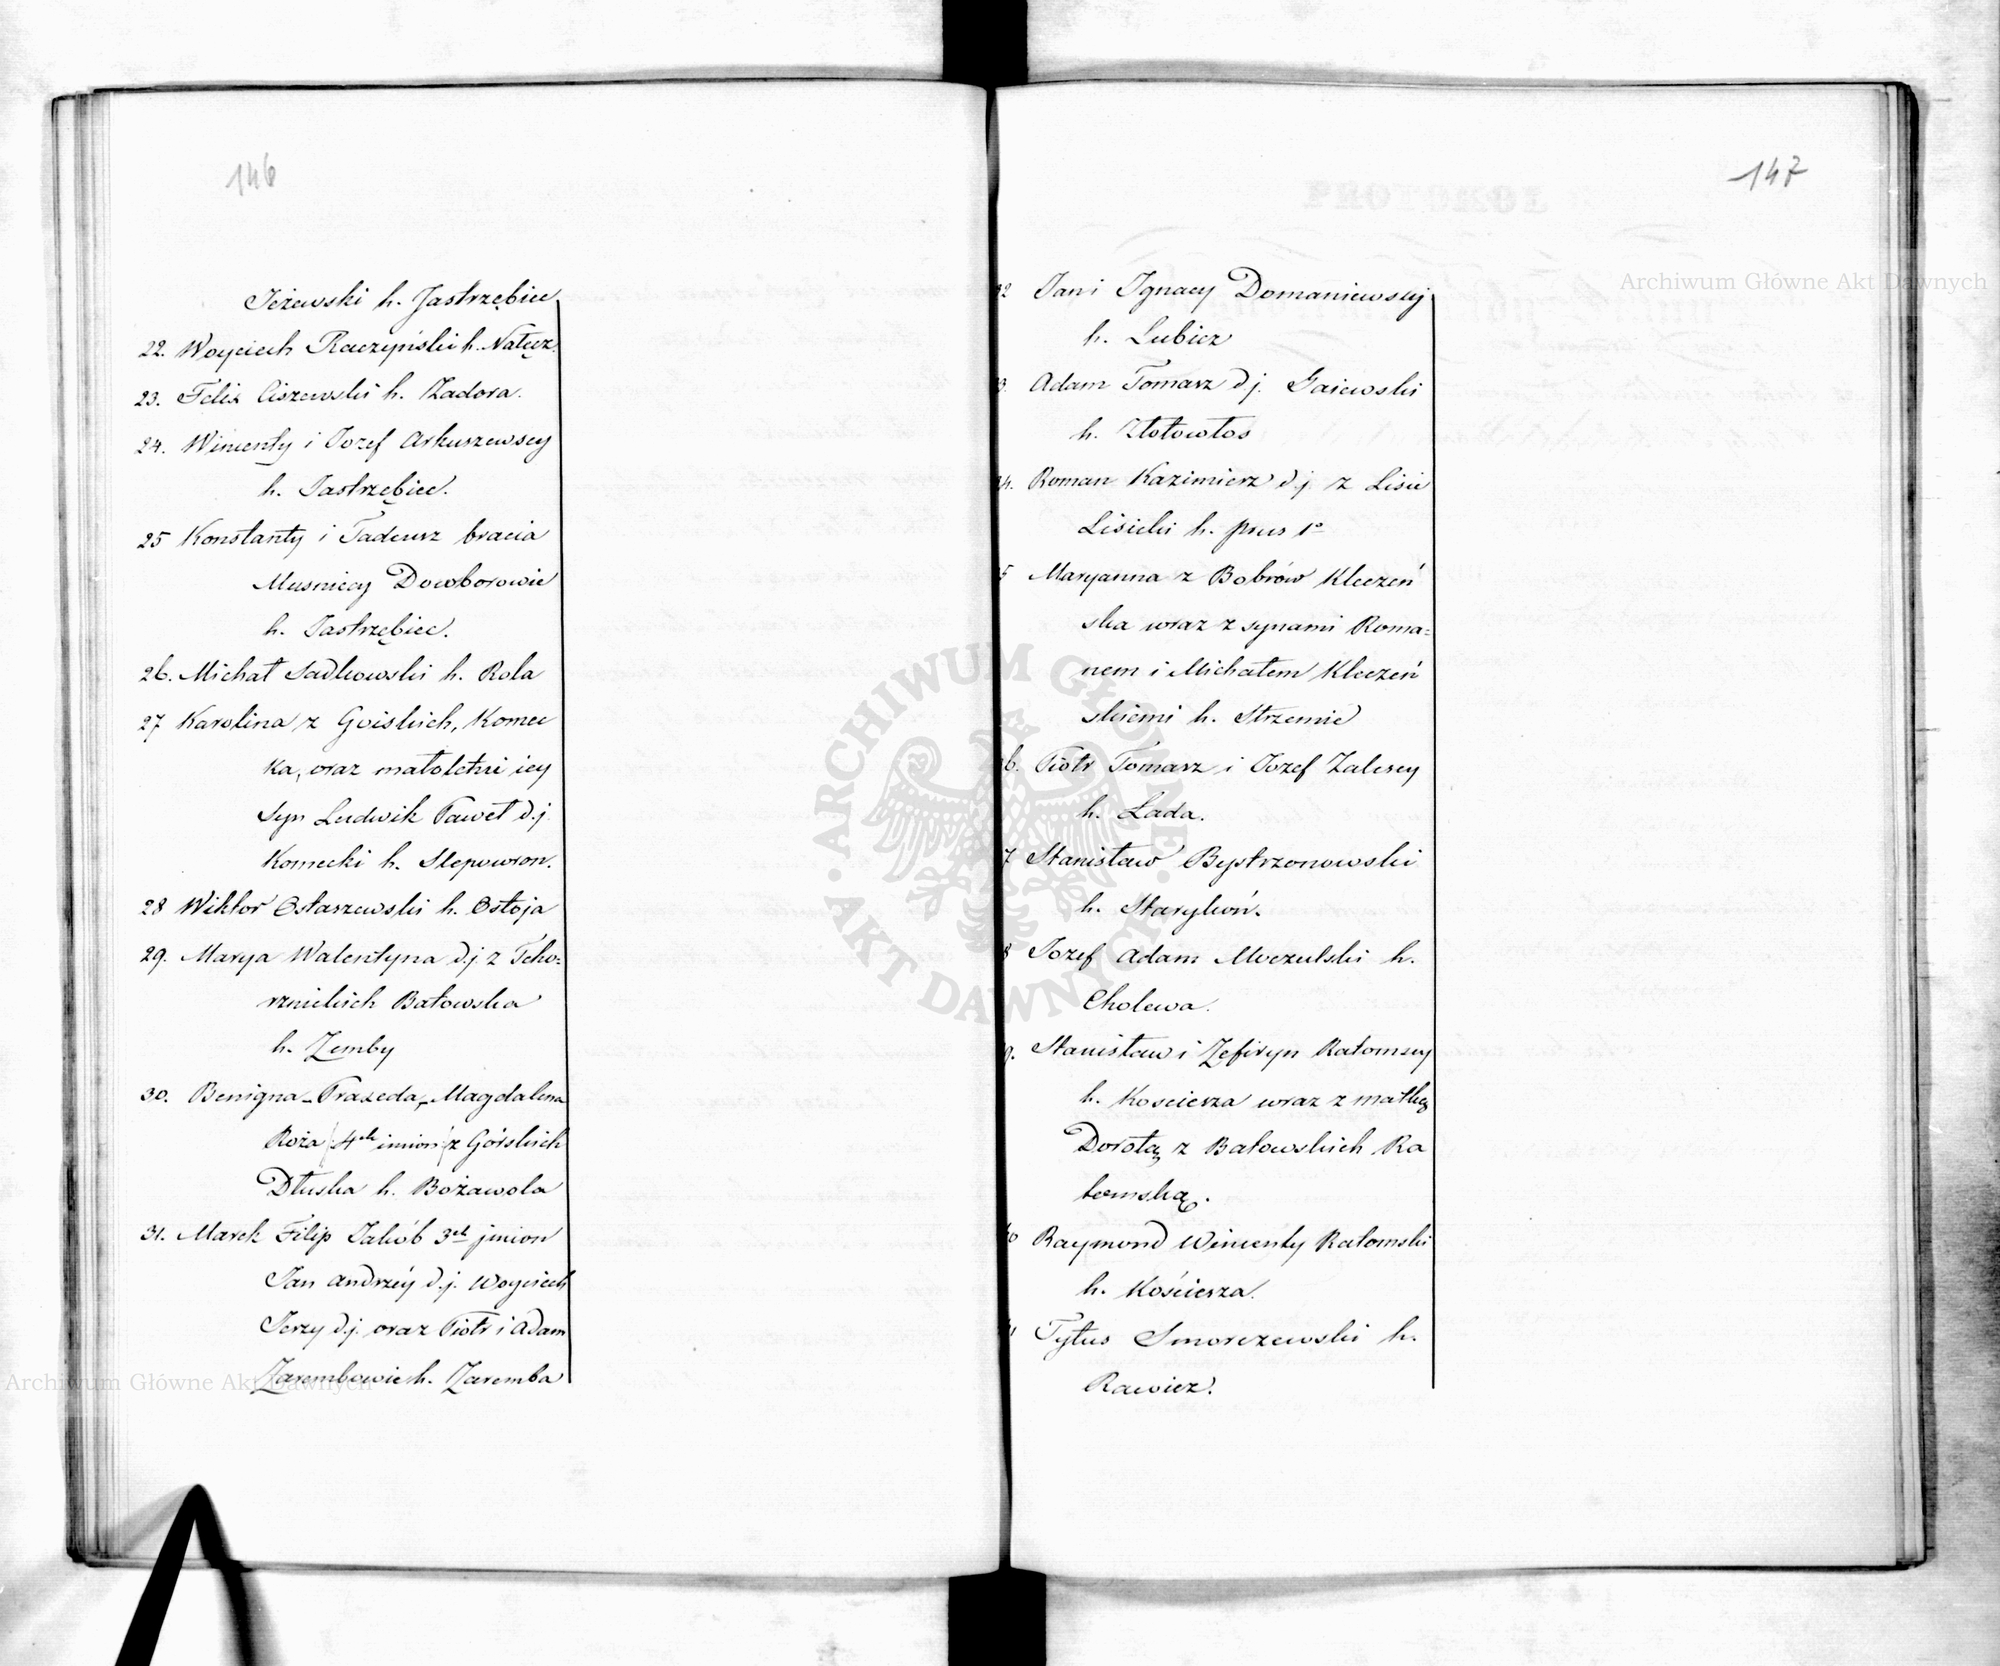 146
Jeżewski h. Jastrzębiec
22. Woyciech Raczyński h. Nałęcz.
23. Felix Ciszewski h. Zadora.
24. Wincenty i Jozef Arkuszewscy
h. Jastrzębiec.
25 Konstanty i Tadeusz bracia
Musniccy Dowborowie
h. Jastrzębiec.
26. Michał Sadkowski h. Rola
27 Karolina z Goiskich, Komec
ka, oraz małoletni iey
Syn Ludwik Paweł d.j.
Komecki h. Slepowron.
28 Wiktor Ostaszewski h. Ostoja
29. Marya Walentyna d.j. z Tcho=
rznickich Batowska
h. Zemby
30. Benigna Praxeda Magdalena
Roża (4ch imion) z Górskich
Dłuska h. Bożawola
31. Marek Filip Jakób 3ch jmion
Jan Andrzéy d.j. Woyciech
Jerzy d.j. oraz Piotr i Adam
Zarembowie h. Zaremba
147
32 Jan i Ignacy Domaniewscy
h. Lubicz
3. Adam Tomasz d.j. Gaiewski
h. Złotowłos
4. Roman Kazimierz d.j. z Lisic
Lisicki h. prus 1o
5 Maryanna z Bobrów Kleczeń
ska wraz z synami Roma=
nem i Michałem Kleczeń
skiemi h. Strzemie
6. Piotr Tomasz i Jozef Zalescy
h. Łada.
7 Stanisław Bystrzonowski
h. Starykoń.
8 Jozef Adam Moczulski h.
Cholewa.
9. Stanisław i Zefiryn Ratomscy
h. Koscierza wraz z matką
Dorotą z Batowskich Ra
tomską.
40 Raymond Wincenty Ratomski
h. Kościerza.
41 Tytus Smorczewski h.
Rawicz.
Archiwum Główne Akt Dawnych
Archiwum Główne Akt Dawnych
ARCHIWUM GŁÓWNE AKT DAWNYCH